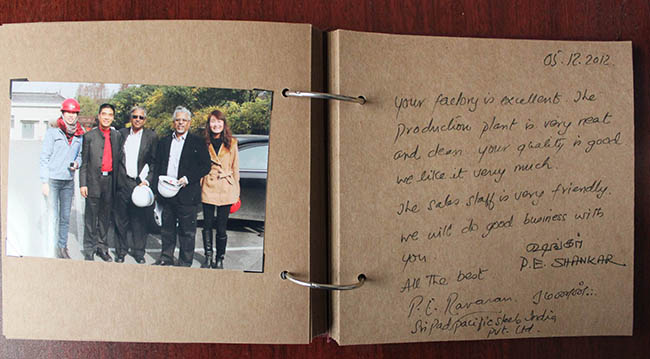 05.12.2012
Your factory is excellent. The
production plant is very neat
and clean your quality is good
we like it very much.
The sales staff is very friendly.
we will do good business with
you.
P.E. SHANKAR
All the best
P.E. Ravanan
Sripad pacific steels, India
Pvt. Ltd.